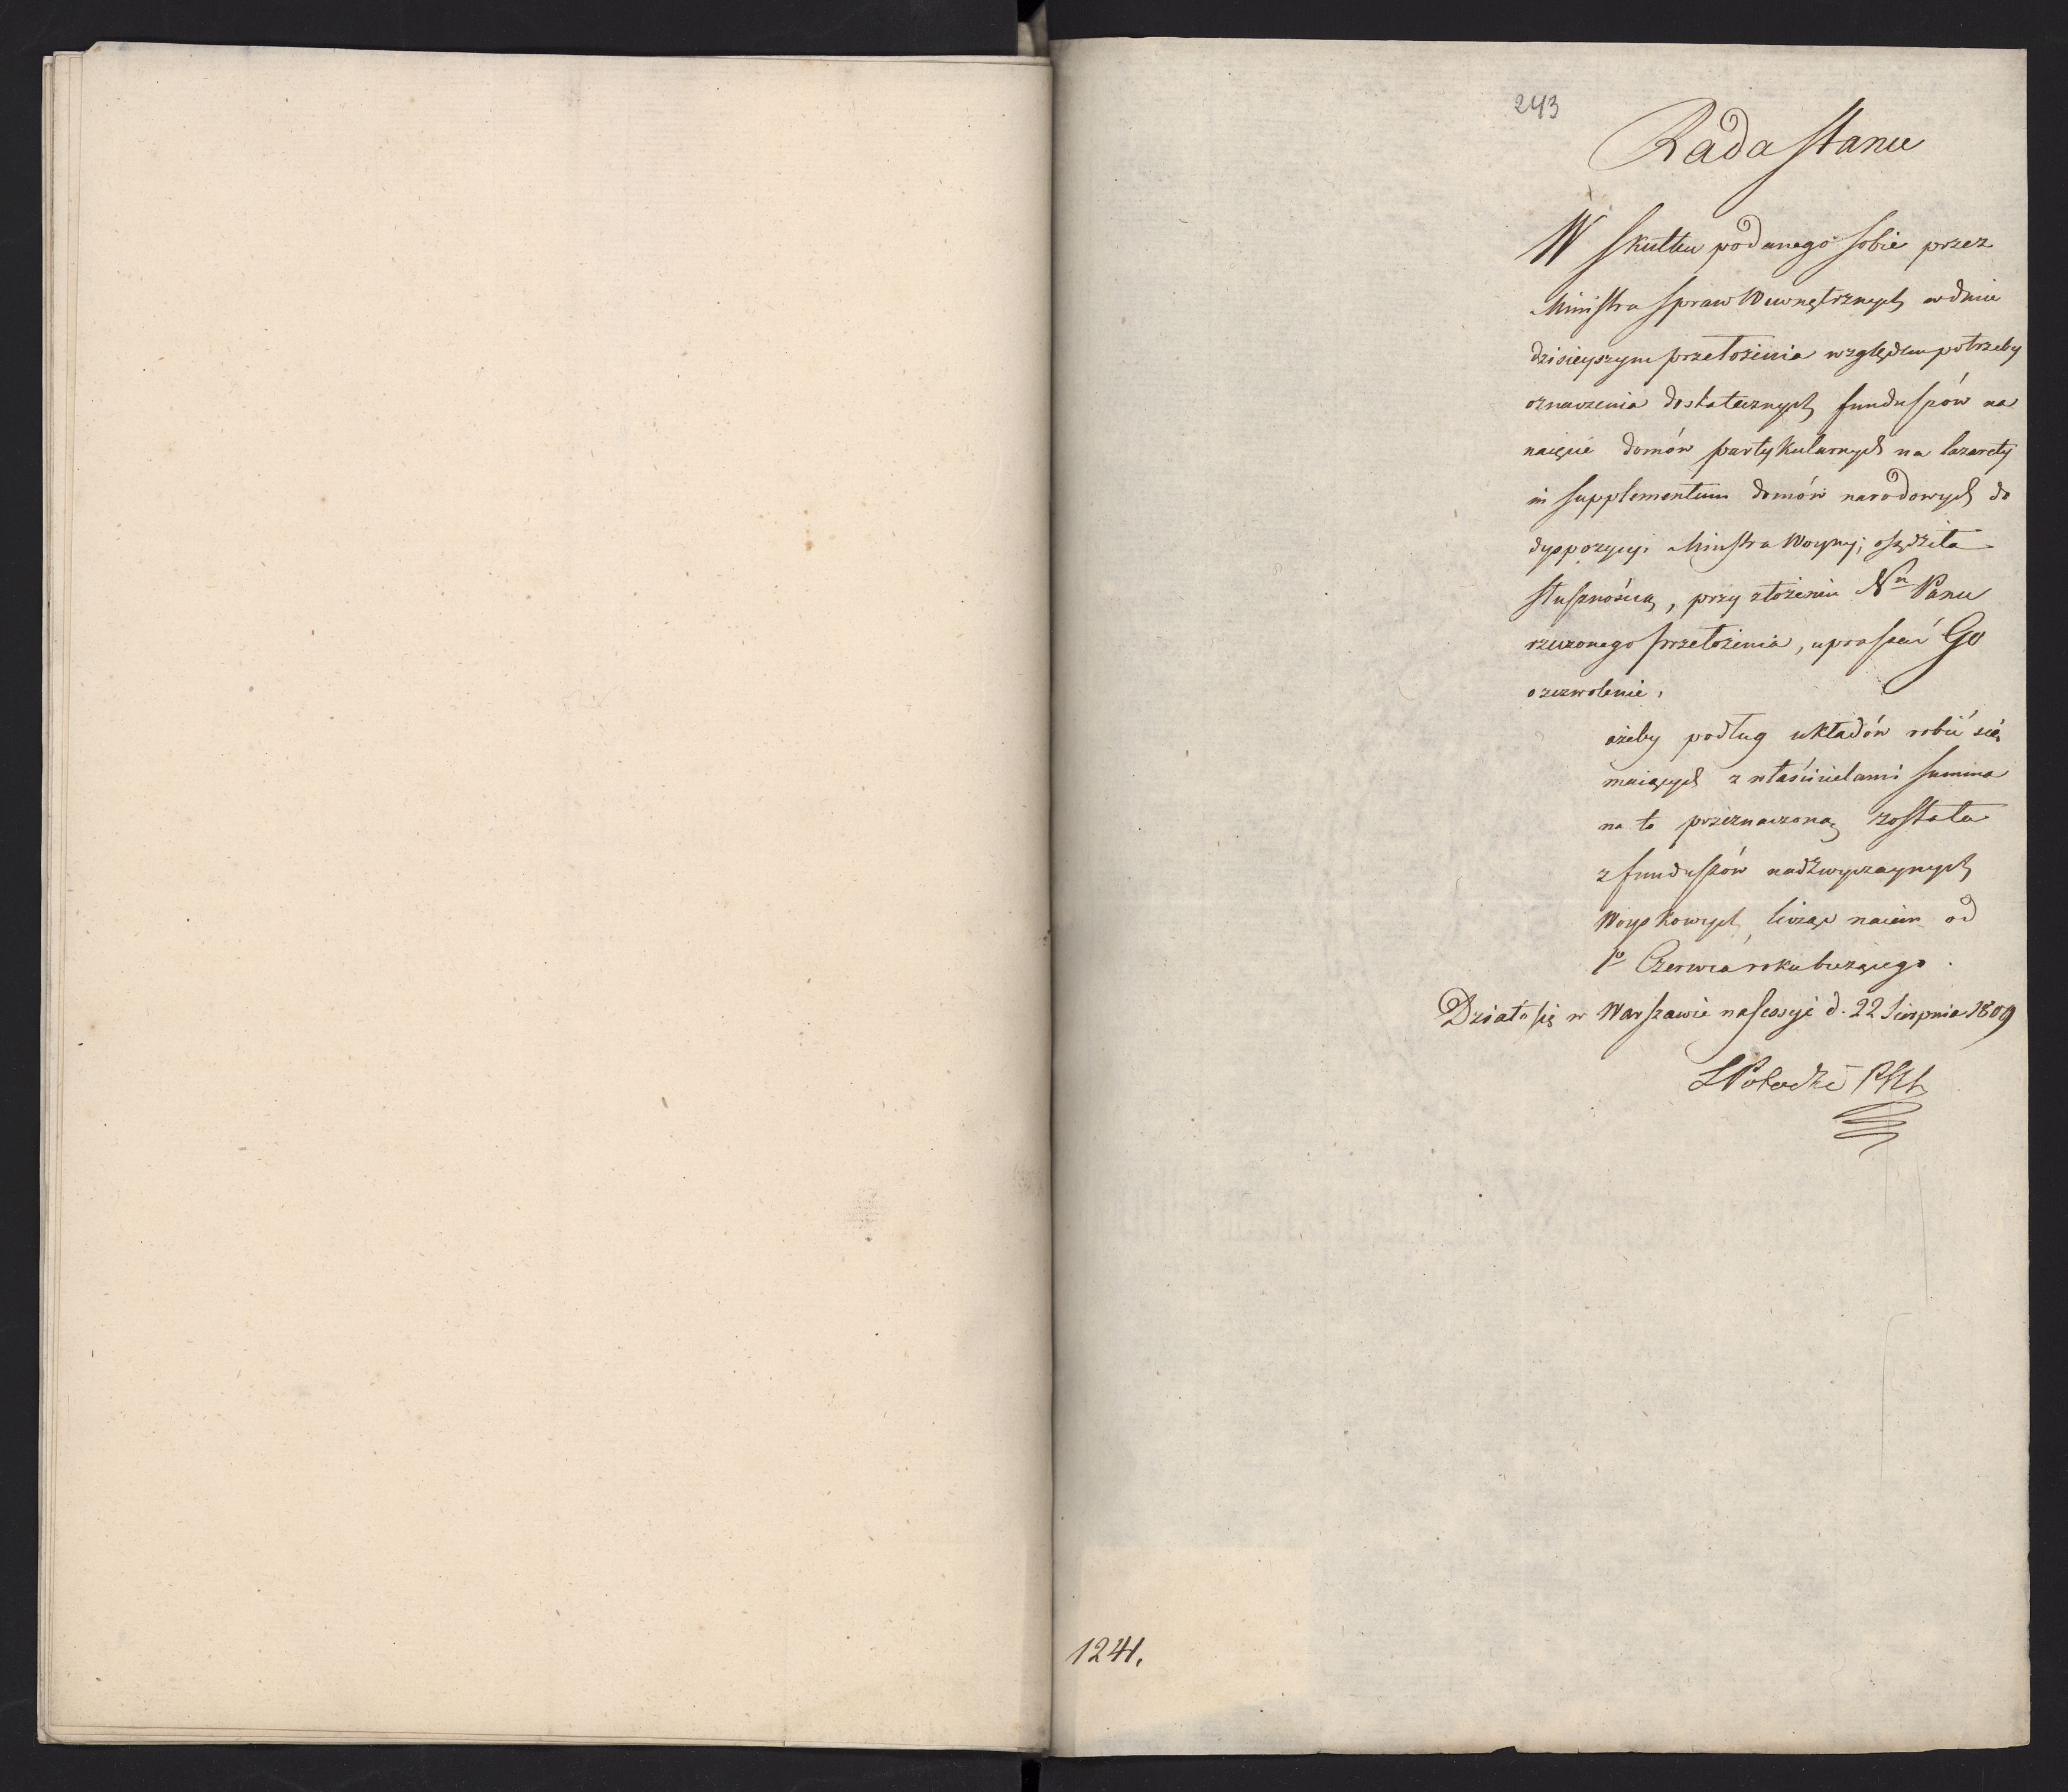 243
Rada Stanu
W skutku podanego sobie przez
Ministra Spraw Wewnętrznych w dniu
dzisieyszym przełożenia względem potrzeby
oznaczenia dostatecznych funduszów na
naięcie domów partykularnych na lazarety
in supplementum domów narodowych do
dyspozycyi Ministra Woyny; osądziła
słusznością, przy złożeniu Nn Panu
rzeczonego przełożenia, upraszać Go
o zezwolenie,
ażeby podług układów robić się
maiących z właścicielami summa
na to przeznaczoną została
z funduszów nadzwyczaynych
Woyskowych, licząc naiem od
1o Czerwca roku bieżącego.
Działo się w Warszawie na sessyi d. 22 Sierpnia 1809
S Potocki
1241.